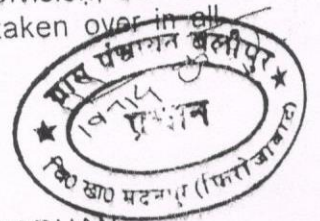 taken over in all
ग्राम पंचायत बलीपुर
प्रधान
वि० खा० मदनपुर (फिरोजाबाद)